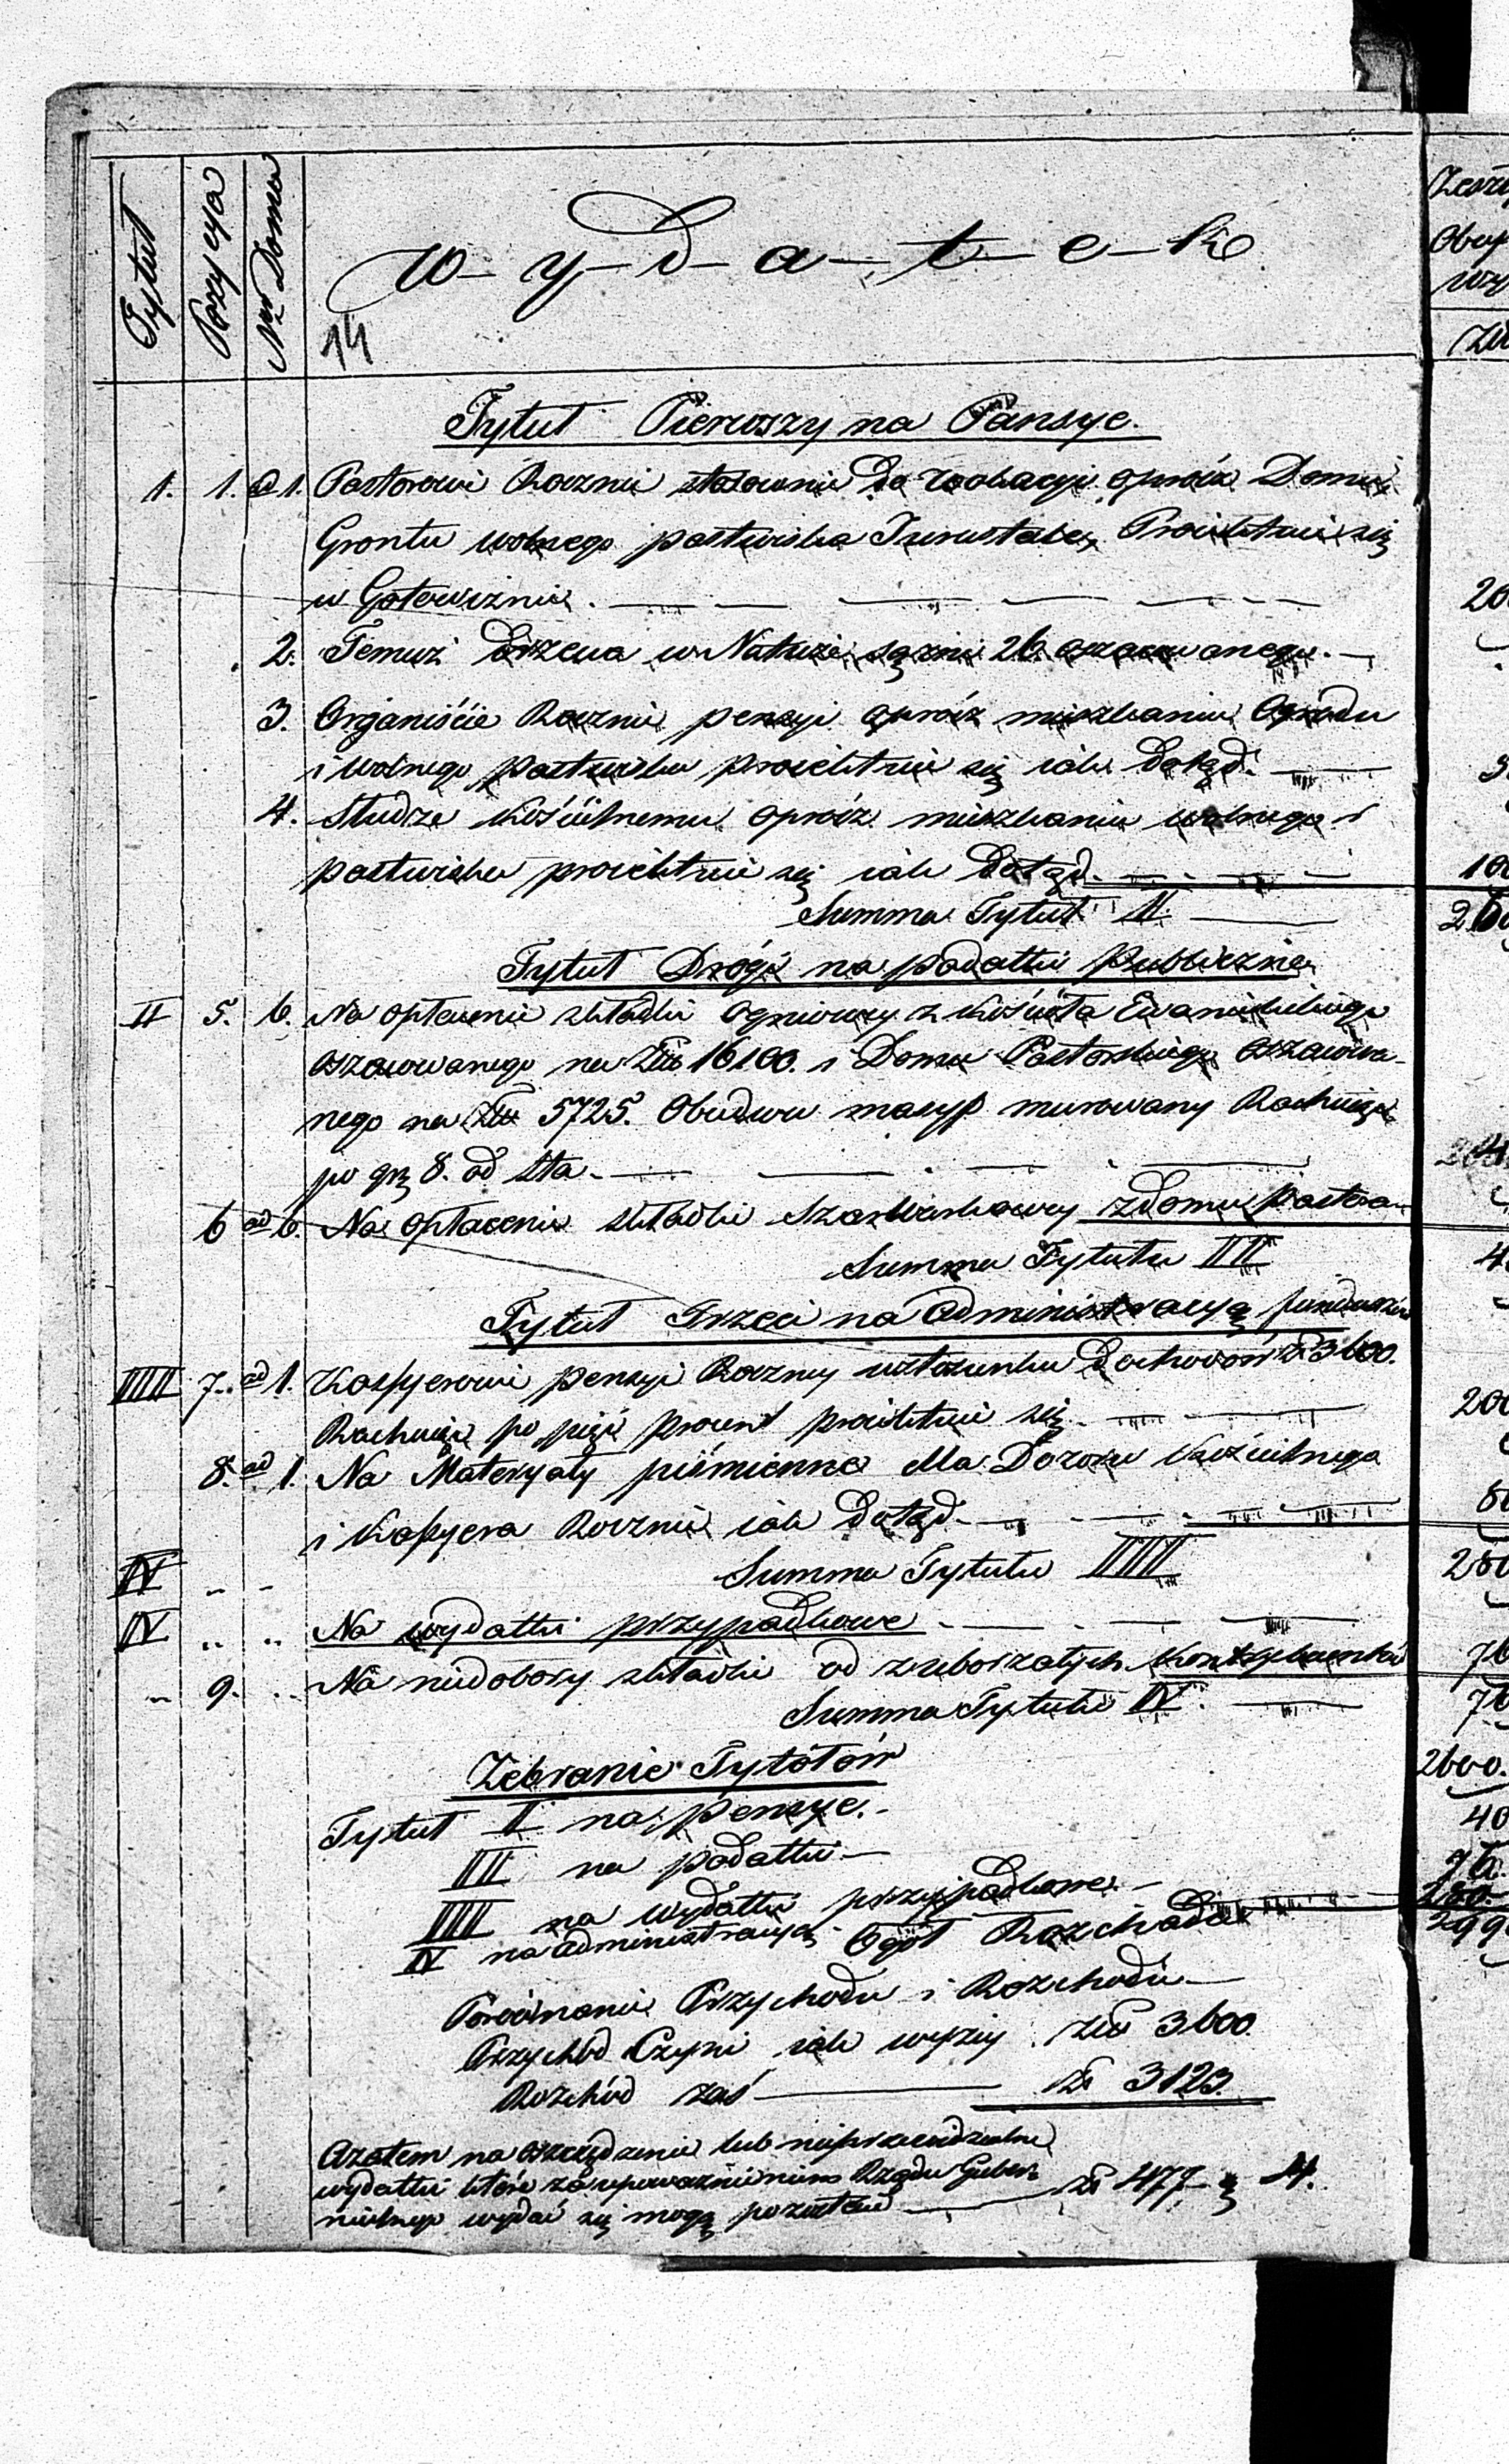 Tytuł
Pozycya
Nr Doma
W-y-d-a-t-e-k
14
Tytuł Pierwszy na Pansye.
1. 1. a 1. Pastorowi Rocznie stosownie do oprócz Domu
Grontu wolnego pastwiska Proiektuie się
w Gotowiznie.
2. Temuż Drzewa w Naturze sążni 26
3. Organiście Rocznie pensyi oprócz mieszkania Ogrodu
i wolnego pastwiska proiektuie się iak Dotąd.
4. Słudze Kościelnemu oprócz mieszkania wolnego i
pastwiska proiektuie się iak Dotąd.
Summa Tytuł II.
Tytuł Drógi na podatki Publiczne
II 5. 6. Na opłacenie składki Ogniowey z Kościoła Ewanielickiego
oszacowanego na Złł 16100. i Domu Pastorskiego oszacowa-
nego na Złł 5725. Obudwu masyf murowany Rachuiąc
po gr 8. od sta.
6 ad 6. Na opłacenie składki Szarwarkowey z Domu Pastora
Summa Tytułu III
Tytuł Trzeci na administracyą funduszów
IIII 7.. ad 1. Kassyerowi pensyi Roczney w stosunku Dochodów Zł 3600.
Rachuiąc po pięć procent proiektuie się.
8. ad 1. Na Materyały piśmienne dla Dozoru Kościelnego
i Kassyera Rocznie iak Dotąd.
Summa Tytułu IIII
IV
IV Na wydatki przypadkowe
9. Na niedobory składki od zubożałych Kontrybuentów
Summa Tytułu IV.
Zebranie Tytółów
Tytuł II na pensye.
III na podatki
IIII na wydatki przypadkowe.
IV na administracyą
Ogół Rozchodu
Porównanie Przychodu i Rozchodu
Przychód Czyni iak wyżey Złł 3600.
Rozchód zaś Zł 3123.
Azatem na oszczędzenie lub nieprzewidzialne
wydatki które za upoważnieniem Rządu Guber
nialnego wydać się mogą pozostaie Zł 477 g 4.